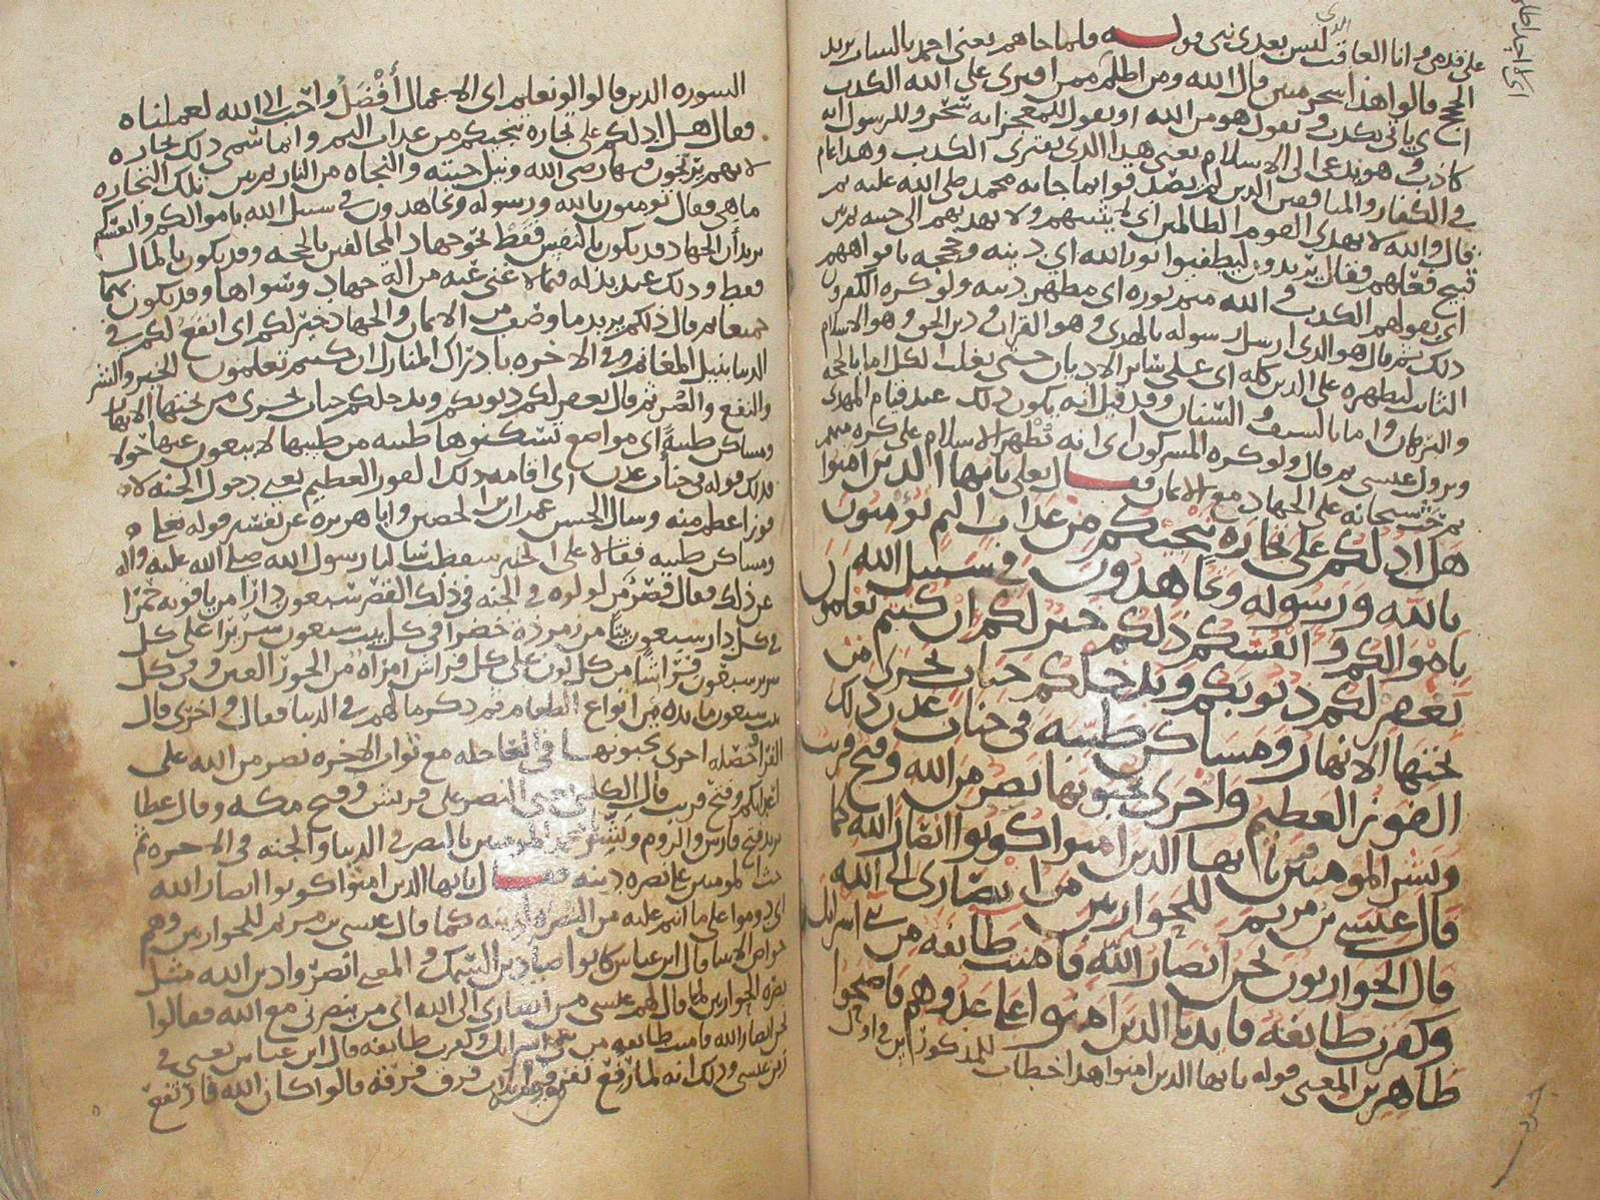 على قدمي وانا العاقب الذي ليس بعدي نبي قوله فلما جاهم يعني احمد بالبينات يريد
الحجج قالوا هذا سحر مبين قال الله ومن اظلم ممن افترى على الله الكذب
اي ياتي بكذب ويقول هو من الله او يقول للمعجزات سحر وللرسول انه
كاذب وهو يدعى الى الاسلام يعني هذا الذي يفتري الكذب وهذا عام
في الكفار والمنافقين الذين لم يصدقوا بما جا به محمد صلى الله عليه ثم
قال والله لا يهدي القوم الظالمين اي لا يثيبهم ولا يهديهم الى جنته ثم بين
قبيح فعلهم فقال يريدون ليطفئوا نور الله اي دينه وحججه بافواههم
اي بقولهم الكذب والله متم نوره اي مظهر دينه ولو كره الكفرون
ذلك ثم قال هو الذي ارسل رسوله بالهدى وهو القران ودين الحق وهو الاسلام
الثابت ليظهره على الدين كله اي على ساير الاديان حتى يغلب الكل اما بالحجة
والبرهان واما بالسيف والسنان وقد قيل انه يكون ذلك عند قيام المهدي
ونزول عيسى ثم قال ولو كره المشركون اي انه يظهر الاسلام على كره منهم
ثم حث سبحانه على الجهاد مع الايمان فقال تعلى يايها الذين امنوا
هل ادلكم على تجارة تنجيكم من عذاب اليم تؤمنون
بالله ورسوله وتجاهدون في سبيل الله
باموالكم وانفسكم ذلكم خير لكم ان كنتم تعلمون
يغفر لكم ذنوبكم ويدخلكم جنات تجري من
تحتها الانهار ومساكن طيبة في جنات عدن ذلك
الفوز العظيم واخرى تحبونها نصر من الله وفتح قريب
وبشر المؤمنين يايها الذين امنوا كونوا انصار الله كما
قال عيسى بن مريم للحواريين من انصاري الى الله
قال الحواريون نحن انصار الله فامنت طائفة من بني اسرايل
وكفرت طائفة فايدنا الذين امنوا على عدوهم فاصبحوا
ظاهرين المعنى قوله يايها الذين امنوا هذا خطاب للمذكورين في اول
السورة الذين قالوا لو نعلم اي الاعمال أفْضَلُ واحب الى الله لعملناه
فقال هل ادلكم على تجارة تنجيكم من عذاب اليم وانما سمى ذلك تجارة
لانهم يربحون فيها رضى الله ونيل جنته والنجاة من النار ثم بين تلك التجارة
ما هي فقال تومنون بالله ورسوله وتجاهدون في سبيل الله باموالكم وانفسكم
يريد أن الجهاد قد يكون بالنفس فقط نحو جهاد المخالفين بالحجة وقد يكون بالمال
فقط وذلك عند بذله فيما لا غنى عنه من الة جهاد وسواها وقد يكون بهما
جميعا ثم قال ذلكم يريد ما وصف من الايمان والجهاد خير لكم اي انفع لكم في
الدنيا بنيل المغانم وفي الاخرة بادراك المنازل ان كنتم تعلمون الخير والشر
والنفع والضر ثم قال يغفر لكم ذنوبكم ويدخلكم جنات تجري من تحتها الانهار
ومساكن طيبةً اي مواضع تسكنوها طيبة من طيبها لا يبغون عنها حولا
فذلك قوله في جنات عدن اي اقامة ذلك الفوز العظيم يعني دخول الجنة لا
فوز اعظم منه وسال الحسن عمران بن الحصين وابا هريرة عن تفسير قوله تعلى
ومساكن طيبة فقالا على الخبير سقطت سالنا رسول الله صلى الله عليه واله
عن ذلك فقال قصر من لولوة في الجنة في ذلك القصر سبعون دارا من ياقوتة حمرا
في كل دار سبعون بيتا من زمردة خضرا في كل بيت سبعون سريرا على كل
سرير سبعون فراشا من كل لون على كل فراش امراة من الحور العين وفي كل
بيت سبعون مائدة من انواع الطعام ثم ذكر ما لهم في الدنيا فقال واخرى قال
الفرا خصلة اخرى تحبونها في العاجلة مع ثواب الاخرة نصر من الله على
اعدايكم وفتح قريب قال الكلبي يعني النصر على قريش وفتح مكة وقال عطا
يريد فتح فارس والروم وبشر يا محمد المؤمنين بالنصر في الدنيا والجنة في الاخرة ثم
حث المومنين على نصرة دينه فقال يايها الذين امنوا كونوا انصار الله
اي دوموا على ما انتم عليه من النصرة لدينه كما قال عيسى بن مريم للحواريين وهم
خواص الانبيا قال ابن عباس كانوا صيادين السمك والمعنى انصروا دين الله مثل
نصرة الحواريين لما قال لهم عيسى من انصاري الى الله اي من ينصرني مع الله فقالوا
نحن انصار الله فامنت طائفة من بني اسرايل وكفرت طائفة قال ابن عباس يعني في
زمن عيسى وذلك انه لما رفع تفرق قومه ثلاث فرق فرقة قالوا كان الله فارتفع